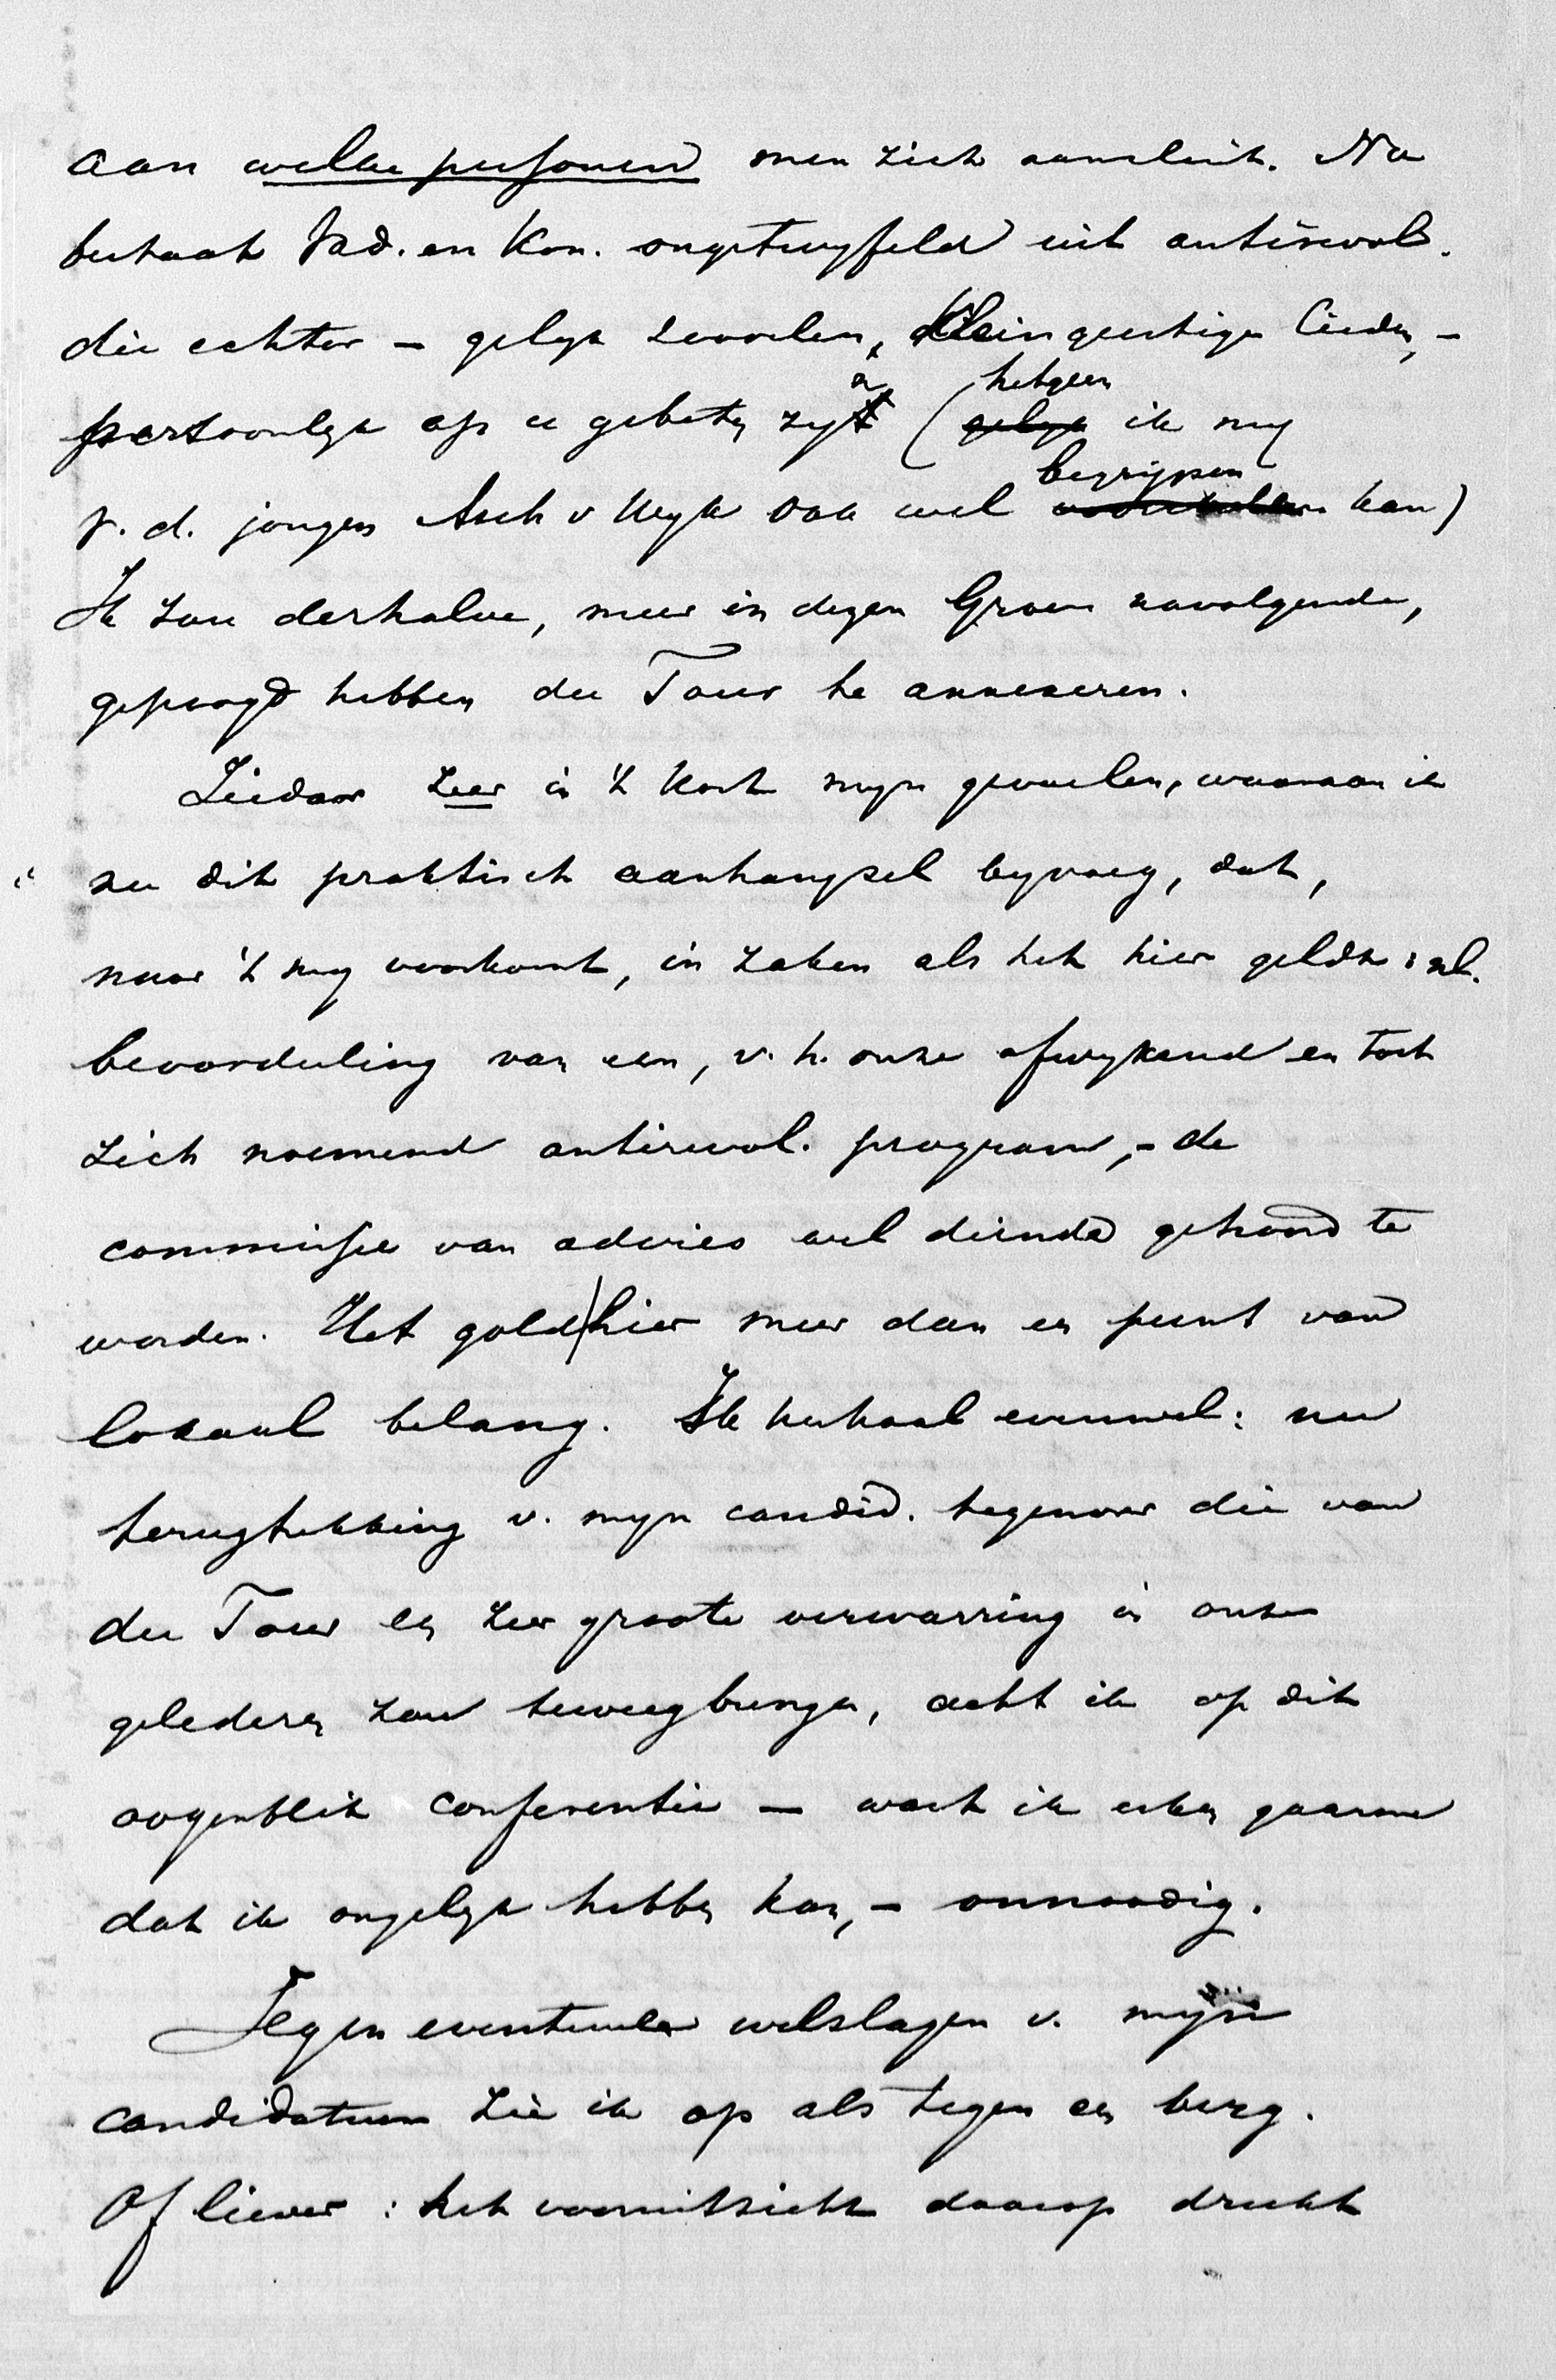 aan welke personen men zich aansluit. Nu
bestaat Vad. en Kon. ongetwyfeld uit antirevol.
die echter – gelyk zoovelen, kleingeestige lieden, –
persoonlyk op u gebeten zyn (hetgeen ik my
v. d. jongen Asch v Wyk ook wel begrijpen kan)
Ik zou derhalve, meer in dezen Groen navolgende,
gepoogd hebben du Tour te annexeren.
Ziedaar zeer in 't kort myn gevoelen, waaraan ik
nu dit praktisch aanhangsel byvoeg, dat,
naar 't my voorkomt, in zaken als het hier geldt: nl.
beoordeeling van een, v. h. onze afwykend en toch
zich noemend antirevol. program, – de
commissie van advies wel diende gehoord te
worden. Het gold hier meer dan een punt van
lokaal belang. Ik herhaal evenwel: nu
terugtrekking v. myn candid. tegenover die van
du Tour een zeer groote verwarring in onze
gelederen zou teweegbrengen, acht ik op dit
oogenblik conferentie – want ik erken gaarne
dat ik ongelyk hebben kan, – onnoodig.
Tegen eventueel welslagen v. myn
candidatuur zie ik op als tegen een berg.
Of liever: het vooruitzicht daarop drukt